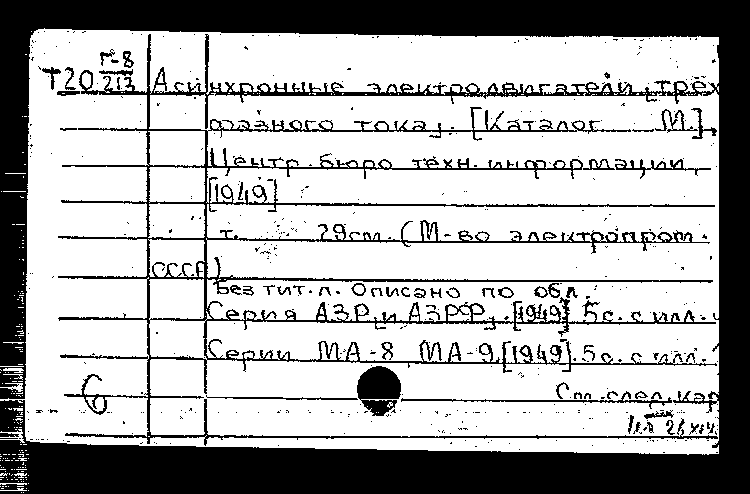 Г-8
Т20 213 Асинхронные электродвигатели „трёх
фазного тока„. [Каталог М.],
Центр. бюро техн. информации,
[1949]
т. 29см. (М-во электропром.
СССР)
Без тит. л. Описано по обл.
Серия АЗР „и АЗРФ„. [1949] 5с. с илл.
Серии МА-8 МА-9. [1949]. 5с. с илл.
6 См. след. кар